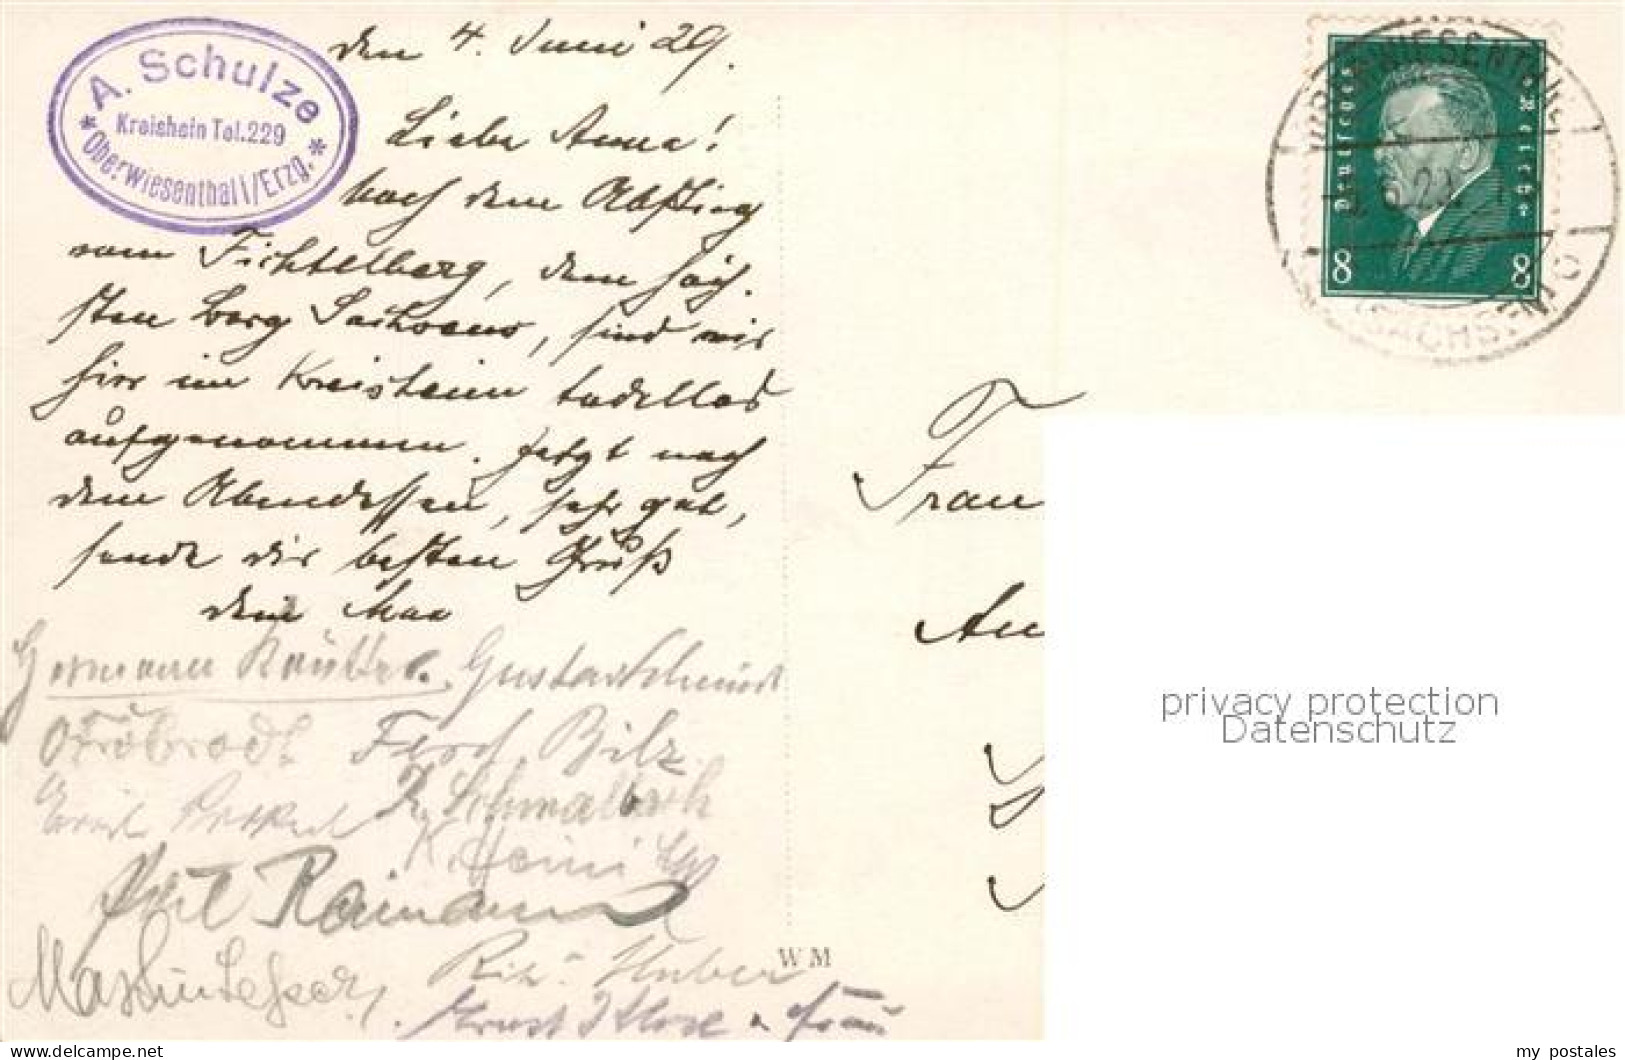 A. Schulze
Kreishein Tel.229
* Oberwiesenthal i/Erzg. *
den 4. Juni 29.
Liebe Anna!
Nach dem Abstieg
vom Fichtelberg, dem höch-
sten Berg Sachsens, sind wir
hier im Kreisheim tadellos
aufgenommen. Jetzt nach
dem Abendessen, sehr gut,
sende dir besten Gruß
dein Max
Hermann
Gustav Schmidt
Ferd. Bilz
Erich
R. Schmalbach
K. Heini
Reimann
Martin
Rich. Huber
Ernst u. Frau
WM
Deutsches Reich
8 8
OBERWIESENTHAL
SACHSEN
Frau
privacy protection
Datenschutz
www.delcampe.net
my_postales